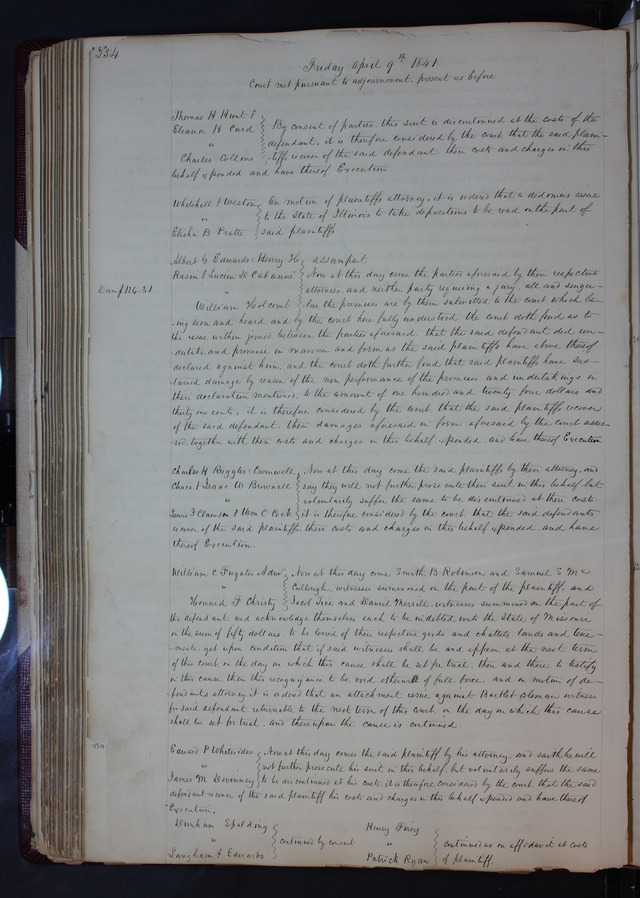 334
Friday April 9th 1841
Court met pursuant to adjournment, present as before
Thomas H Hunt &
Eleanor H Curd
"
Charles Collins
By consent of parties, this suit is discontinued at the costs of the
defendant, it is therefore considered by the court that the said plain-
-tiffs recover of the said defendant their costs and charges in this
behalf expended and have thereof Execution.
Whitehill & Weston
"
Elisha B Pratte
On motion of plaintiffs attorney, it is ordered that a dedimus issue
to the State of Illinois to take depositions to be read on the part of
said plaintiffs
Albert G Edwards Henry H
Rasin & Lucien D Cabanne
"
William Holcomb
Dam $124.31
assumpsit
Now at this day come the parties aforesaid by their respective
attornies, and neither party requiring a jury, all and singu-
-lar the premises are by them submitted to the court which be-
-ing seen and heard and by the court here fully understood, the court doth find as to
the issue within joined between the parties aforesaid, that the said defendant did un-
-dertake and promise in manner and form as the said plaintiffs have above thereof
declared against him, and the court doth further find that said plaintiffs have sus-
-tained damage by reason of the non performance of the promises and undertakings in
their declaration mentioned, to the amount of one hundred and twenty four dollars and
thirty one cents, it is therefore considered by the court, that the said plaintiffs recover
of the said defendant, their damages aforesaid in form aforesaid by the court asses-
-sed, together with their costs and charges in this behalf expended, and have thereof Execution
Charles H Ruggles Cromwell
Chace & Isaac W Brownell
"
Lewis J Clawson & Wm C Cook
Now at this day come the said plaintiffs by their attorney, and
say they will not further prosecute their suit in this behalf but
voluntarily suffer the same to be discontinued at their costs
it is therefore considered by the court that the said defendants
recover of the said plaintiffs, their costs and charges in this behalf expended, and have
thereof Execution.
William C Fugates Admr
"
Howard F Christy
Now at this day come Smith B Robinson and Samuel S Mc
Cullough, witnesses summoned on the part of the plaintiff, and
Jacob Tice and Daniel Merrill, witnesses summoned on the part of
the defendant and acknowledge themselves each to be indebted unto the State of Missouri
in the sum of fifty dollars, to be levied of their respective goods and chattels, lands and tene-
-ments, yet upon condition that if said witnesses shall be and appear at the next term
of this court on the day on which this cause shall be set for trial, then and there to testify
in this cause then this recognizance to be void otherwise of full force, and on motion of de-
-fendants attorney, it is ordered that an attachment issue against Bartlet Coleman witness
for said defendant returnable to the next term of this court on the day on which this cause
shall be set for trial, and thereupon the cause is continued
Edwin P Whitesides
"
James M Devinney
Now at this day comes the said plaintiff by his attorney, and saith he will
not further prosecute his suit in this behalf, but voluntarily suffers the same
to be discontinued at his costs, it is therefore considered by the court, that the said
defendant recover of the said plaintiff his costs and charges in this behalf expended and have thereof
Execution.
Dunham Spalding
"
Langham & Edwards
continued by consent
Henry Fury
"
Patrick Ryan
continued as on affidavit at costs
of plaintiff.